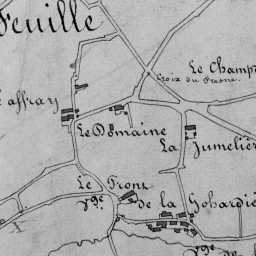 Feuille
Le Champ
Croix du Fresne
affray
Le Domaine
La Jumeliè
Le Tronc
de la Gohardiè